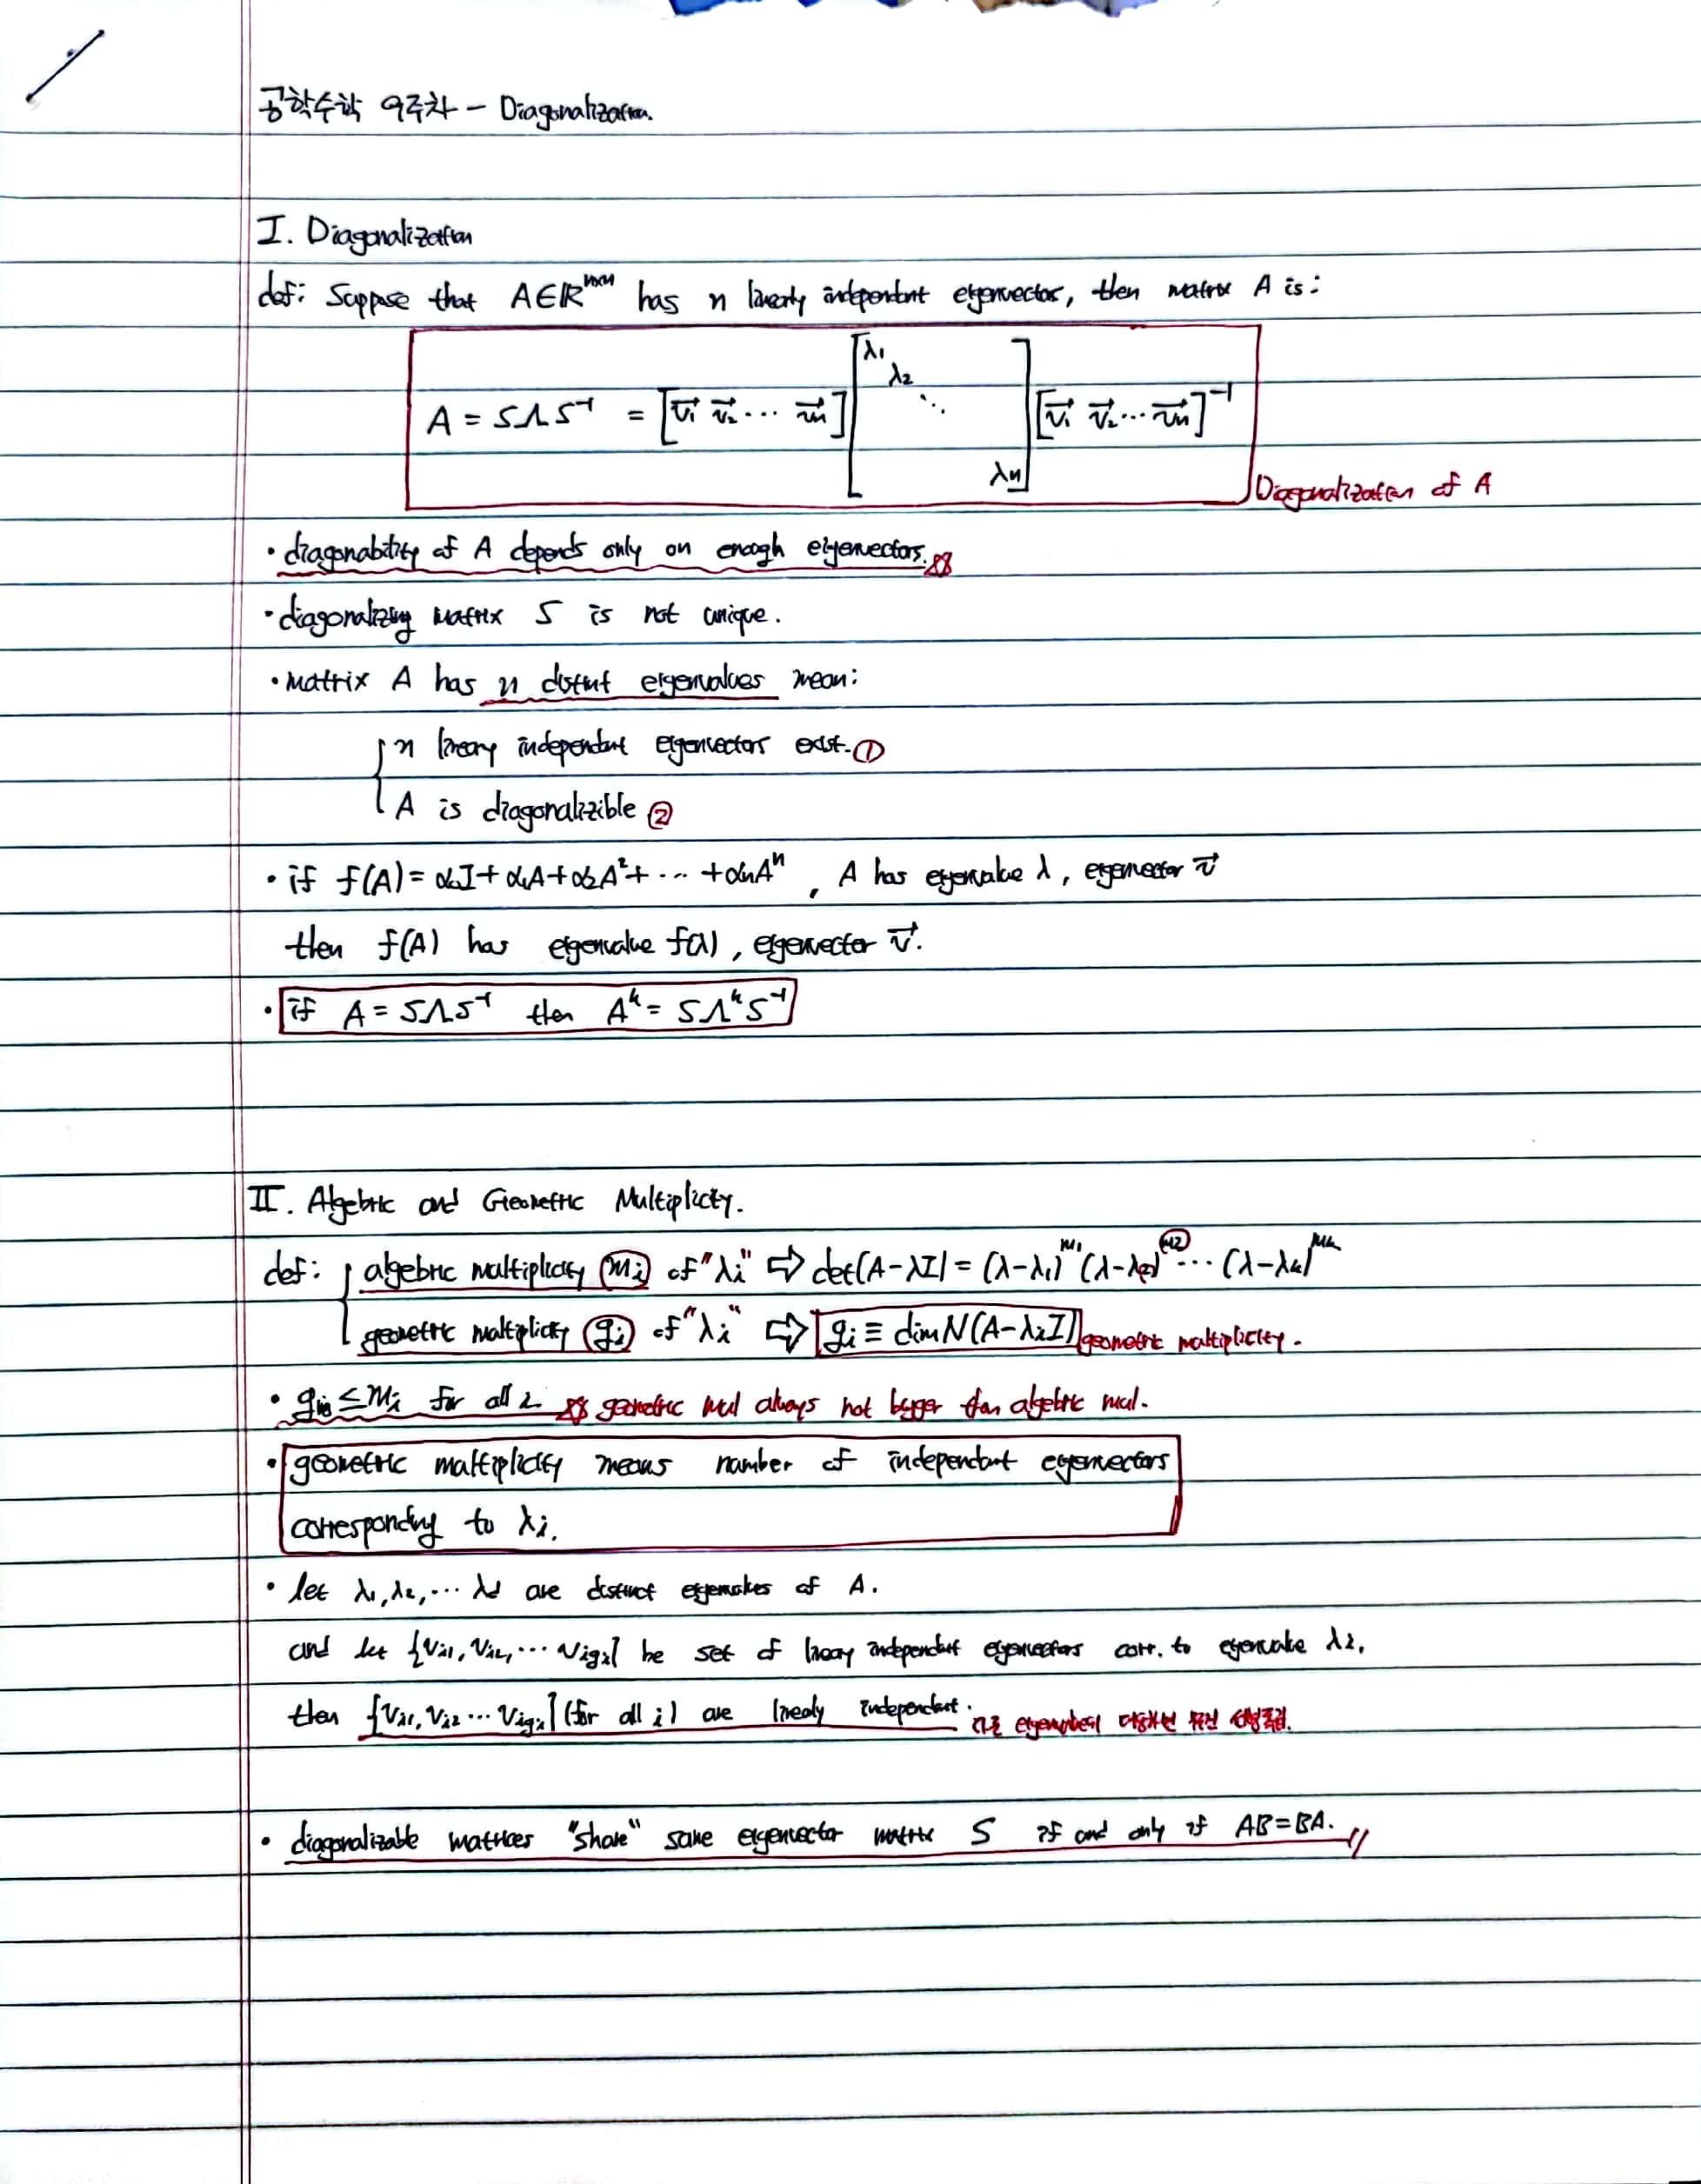 공학수학 9주차 - Diagonalization.
I. Diagonalization
def: Suppose that A∈ℝⁿˣⁿ has n linearly independent eigenvector, then matrix A is:
A = SΛS⁻¹ = [v⃗₁ v⃗₂ ⋯ v⃗ₙ] [λ₁ λ₂ ⋱ λₙ] [v⃗₁ v⃗₂ ⋯ v⃗ₙ]⁻¹
Diagonalization of A
• diagonability of A depends only on enough eigenvectors.
• diagonalizing matrix S is not unique.
• matrix A has n distinct eigenvalues mean:
n lineary independent eigenvectors exist. ①
A is diagonalizible ②
• if f(A) = α₀I + α₁A + α₂A² + ⋯ + αₙAⁿ, A has eigenvalue λ, eigenvector v⃗
then f(A) has eigenvalue f(λ), eigenvector v⃗.
• if A = SΛS⁻¹ then Aᵏ = SΛᵏS⁻¹
II. Algebric and Geometric Multiplicity.
def: algebric multiplicity (mᵢ) of "λᵢ" ⇨ det(A-λI) = (λ-λ₁)ᵐ¹(λ-λ₂)ᵐ² ⋯ (λ-λₖ)ᵐᵏ
geometric multiplicity (gᵢ) of "λᵢ" ⇨ gᵢ ≡ dim N(A-λᵢI) geometric multiplicity.
• gᵢ ≤ mᵢ for all i. geometric mul always not bigger than algebric mul.
• geometric multiplicity means number of independent eigenvectors
corresponding to λᵢ.
• let λ₁, λ₂, ⋯ are distinct eigenvalues of A.
and let {vᵢ₁, vᵢ₂, ⋯ vᵢgᵢ} be set of lineary independent eigenvectors corr. to eigenvalue λᵢ,
then {vᵢ₁, vᵢ₂ ⋯ vᵢgᵢ} (for all i) are linearly independent. 다른 선형독립.
• diagonalizable matrices "share" same eigenvector matrix S if and only if AB=BA.